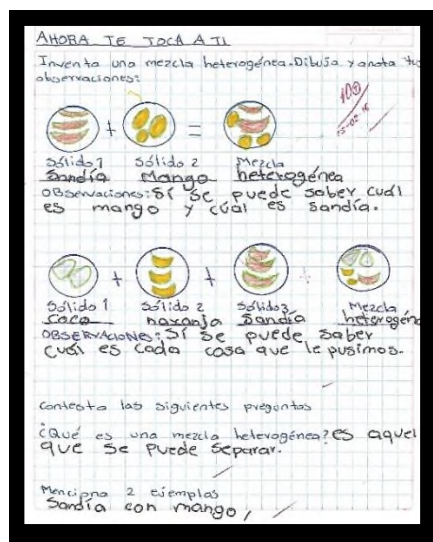 AHORA TE TOCA A TI
Inventa una mezcla heterogénea. Dibuja y anota tus
observaciones:
100
+ =
Sólido 1 Sólido 2 Mezcla
Sandía Mango heterogénea
OBservaciones: Sí se puede saber cuál
es mango y cuál es sandía.
+ + ÷
Sólido 1 Sólido 2 Sólido 3 Mezcla
coco naranja Sandía heterogéne
OBSERVAcioNes: Sí se puede saber
cuál es cada cosa que le pusimos.
Contesta las siguientes preguntas
¿Qué es una mezcla heterogénea? es aquel
que se puede separar.
Menciona 2 ejemplos
Sandía con mango,